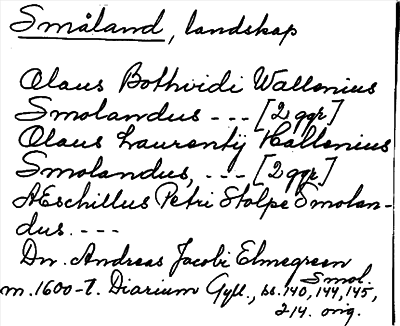 Småland, landskap
Olaus Bothvidi Wallenius
Smolandus --- [2 ggr]
Olaus Laurentij Hallenius
Smolandus, --- [2 ggr]
AEschillus Petri Stolpe Smolan-
dus. ---
Dn. Andreas Jacobi Elmegreen
Smol.
m. 1600-t. Diarium Gyll., ss. 140, 144, 145,
214. orig.